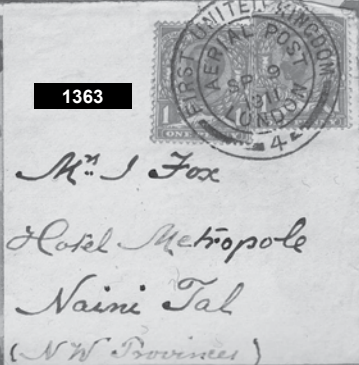 FIRST UNITED KINGDOM
AERIAL POST
SP 9
1911
LONDON
4
1363
1 ONE
Mrs J Fox
Hotel Metropole
Naini Tal
(N W Provinces)